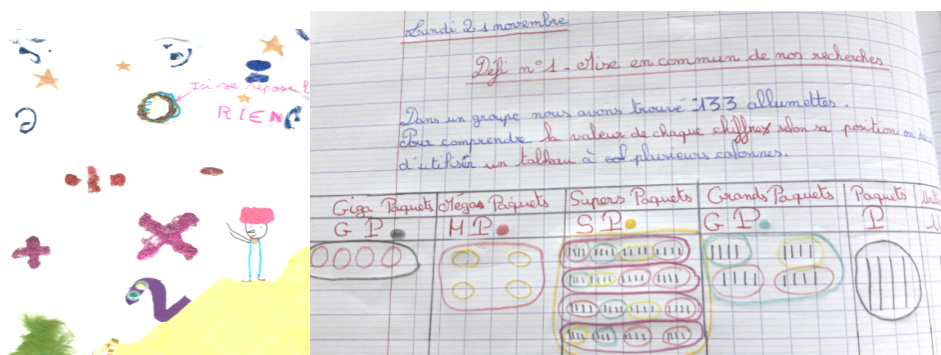 Ici se repose
RIEN
Lundi 21 novembre
Défi n°1 - Mise en commun de nos recherches
Dans un groupe nous avons trouvé 133 allumettes.
Pour comprendre la valeur de chaque chiffres selon sa position on
d'utiliser un tableau à plusieurs colonnes.
Giga Paquets Mégas Paquets Supers Paquets Grands Paquets Paquets
G P. M P. S P. G P. P